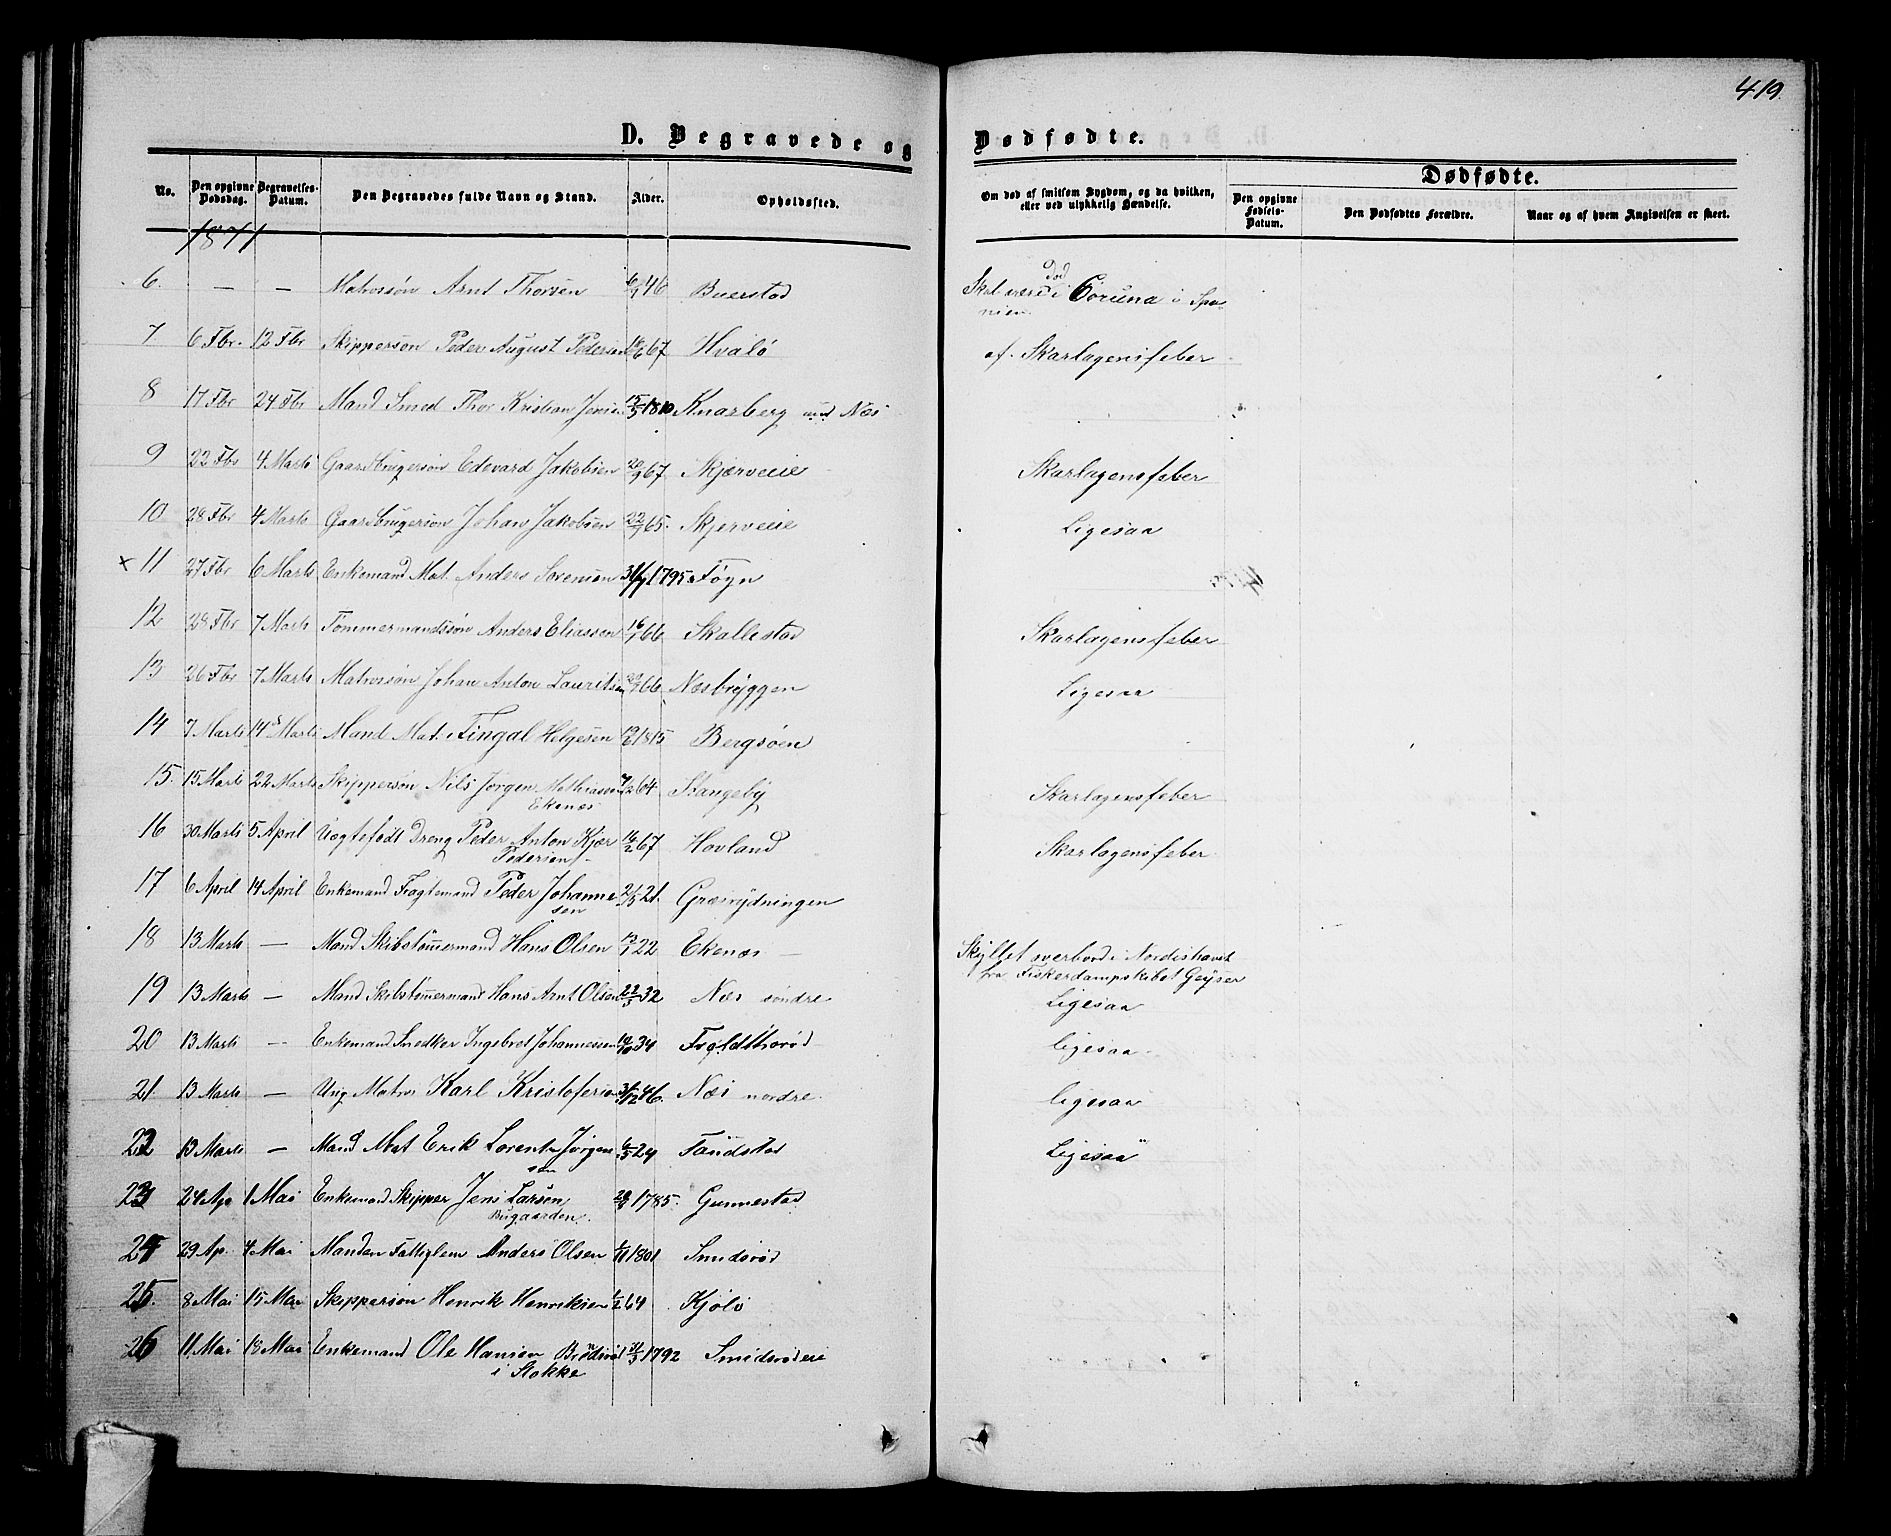 419.
D. Begravede og Dødfødte.
No. Den opgivne Dødsdag. Begravelses-Datum. Den Begravedes fulde Navn og Stand. Alder. Opholdssted. Om død af smitsom Sygdom, og da hvilken, eller ved ulykkelig Hændelse. Dødfødte. Den opgivne Fødsels-Datum. Den Dødfødtes Forældre. Naar og af hvem Angivelsen er skeet.
1871
6. — — Matrossøn Arnt Thorsen 46 Buerstad Skal være død i Coruna i Spanien.
7. 6 Fbr. 12 Fbr Skippersøn Peder August Pedersen 67 Hvalø af Skarlagensfeber
8 17 Fbr 24 Fbr Mand Smed Thor Kristian Jensen 15/3 1810 Knarberg und Nes
9 22 Fbr 4 Marts Gaardbrugersøn Edevard Jakobsen 20/9 67 Skjærveie Skarlagensfeber
10 28 Fbr 4 Marts Gaardbrugersøn Johan Jakobsen 65. Skjerveie Ligesaa
× 11 27 Fbr 6 Marts Enkemand Mat. Anders Sørensen 1795 Føyn
12 28 Fbr 7 Marts Tømmermandssøn Anders Eliassen 66 Skallestad Skarlagensfeber
13. 26 Fbr 7 Marts Matrossøn Johan Anton Lauritsen 66 Næsbryggen Ligesaa
14 7 Marts 14 Marts Mand Mat. Fingal Helgesen 1815 Bergsøen
15. 15 Marts 22 Marts Skippersøn Nils Jørgen Mathiasen Ekenæs 64 Stangeby Skarlagensfeber
16 30 Marts 5 April Uægtefødt Dreng Peder Anton Kjær Pedersen 16/2 67 Hovland Skarlagensfeber.
17 6 April 14 April Enkemand Fragtemand Peder Johannesen 2/5 21. Græsrydningen
18 13 Marts — Mand Skibstømmermand Hans Olsen 22 Ekenæs — Skyllet overbord i Nordishavet fra Fiskerdampskibet Geyser
19 13 Marts — Mand Skibstømmermand Hans Arnt Olsen 22/3 32 Nes søndre Ligesaa
20 13 Marts — Enkemand Snedker Ingebret Johannessen 34 Ligesaa
21. 13 Marts — Ung Matros Karl Kristofersen 31/12 46. Nes nordre Ligesaa
22 13 Marts — Mand Mat Erik Lorents Jørgensen 6/5 24 Ligesaa
23 24 Ap 1 Mai Enkemand Skipper Jens Larsen Bugaarden. 1785. Gunnestad
24 29 Ap. 4 Mai Manden Fattiglem Anders Olsen 1801 Smidsrød
25. 8 Mai 15 Mai Skippersøn Henrik Henriksen 1/2 64 Kjøle
26 11 Mai 18 Mai Enkemand Ole Hansen Brødsrød i Stokke 1792 Smidsrødeie